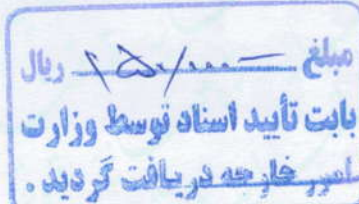 مبلغ ۲۵۰/۰۰۰ ریال
بابت تأیید اسناد توسط وزارت
امور خارجه دریافت گردید .